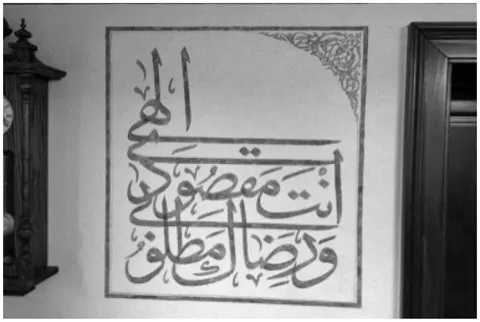 الهي
انت مقصودي
ورضاك مطلوبي